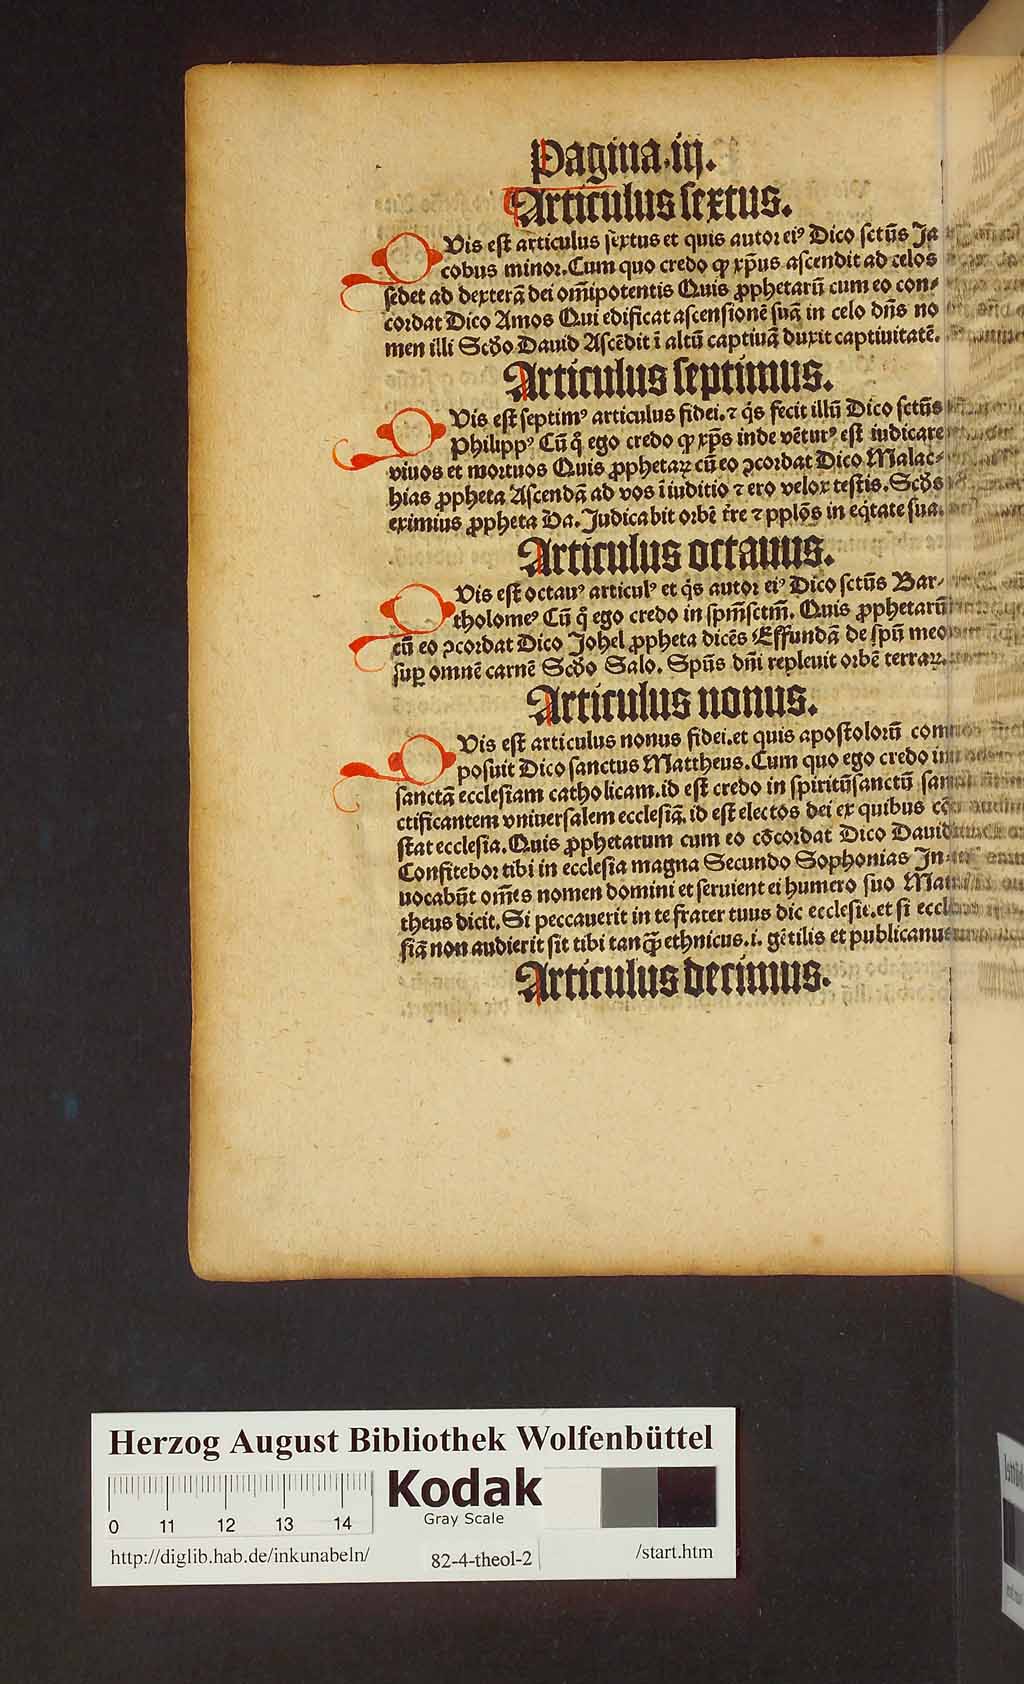 Pagina.iij.
Articulus sextus.
QVis est articulus sextus et quis autor eiꝰ Dico sctūs Ja
cobus minor. Cum quo credo ꝙ xp̄us ascendit ad celos
sedet ad dexterā dei om̄ipotentis Quis ꝓphetarū cum eo con⸗
cordat Dico Amos Qui edificat ascensionē suā in celo dn̄s no
men illi Scd̄o Dauid Ascēdit ī altū captiuā duxit captiuitatē.
Articulus septimus.
QVis est septimꝰ articulus fidei. ⁊ q̇s fecit illū Dico sctūs
Philippꝰ Cū q̊ ego credo ꝙ xp̄s inde vēturꝰ est iudicare
viuos et mortuos Quis ꝓphetaꝝ cū eo ꝯcordat Dico Malac⸗
hias ꝓpheta Ascendā ad vos ī iuditio ⁊ ero velox testis. Scd̄s
eximius ꝓpheta Da. Judicabit orbē tr̄e ⁊ pplōs in eq̇tate sua.
Articulus octauus.
QVis est octauꝰ articulꝰ et q̇s autor eiꝰ Dico sctūs Bar⸗
tholomeꝰ Cū q̊ ego credo in sp̄m̄sctm̄. Quis ꝓphetarū
cū eo ꝯcordat Dico Johel ꝓpheta dicēs Effundā de spū meo
suꝑ omnē carnē Scd̄o Salo. Spūs dn̄i repleuit orbē terraꝝ.
Articulus nonus.
QVis est articulus nonus fidei. et quis apostolorū com
posuit Dico sanctus Mattheus. Cum quo ego credo in
sanctā ecclesiam catholicam. id est credo in spiritūsanctū san
ctificantem vniuersalem ecclesiā. id est electos dei ex quibus cō
stat ecclesia. Quis ꝓphetarum cum eo cōcordat Dico Dauid
Confitebor tibi in ecclesia magna Secundo Sophonias In⸗
uocabūt om̄es nomen domini et seruient ei humero suo Mat
theus dicit. Si peccauerit in te frater tuus dic ecclesie. et si eccl
siā non audierit sit tibi tanꝙ̄ ethnicus. i. gētilis et publicanus
Articulus decimus.
Herzog August Bibliothek Wolfenbüttel
Kodak
Gray Scale
0 11 12 13 14
http://diglib.hab.de/inkunabeln/ 82-4-theol-2 /start.htm